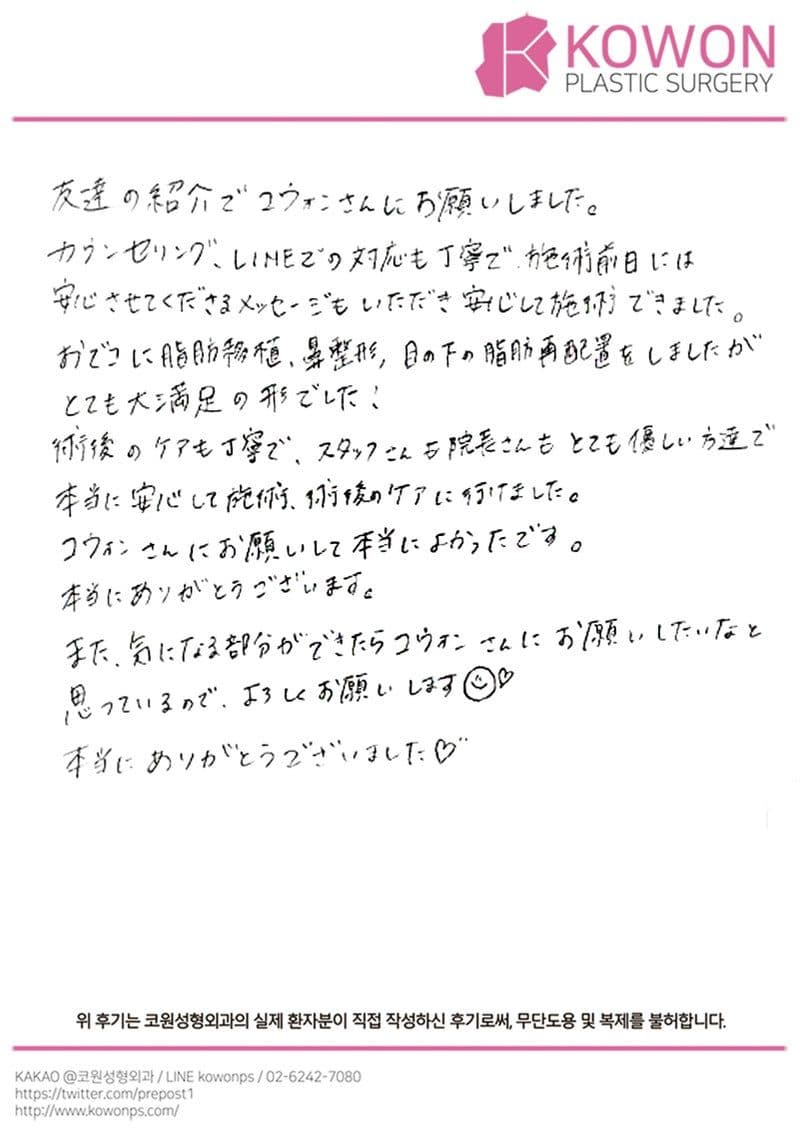 KOWON
PLASTIC SURGERY
友達の紹介でコウォンさんにお願いしました。
カウンセリング、LINEでの対応も丁寧で、施術前日には
安心させてくださるメッセージもいただき安心して施術できました。
おでこに脂肪移植、鼻整形、目の下の脂肪再配置をしましたが
とても大満足の形でした!
術後のケアも丁寧で、スタッフさんも院長さんもとても優しい方達で
本当に安心して施術、術後のケアに行けました。
コウォンさんにお願いして本当によかったです。
本当にありがとうございます。
また、気になる部分ができたらコウォンさんにお願いしたいなと
思っているので、よろしくお願いします☺♡
本当にありがとうございました♡
위 후기는 코원성형외과의 실제 환자분이 직접 작성하신 후기로써, 무단도용 및 복제를 불허합니다.
KAKAO @코원성형외과 / LINE kowonps / 02-6242-7080
https://twitter.com/prepost1
http://www.kowonps.com/